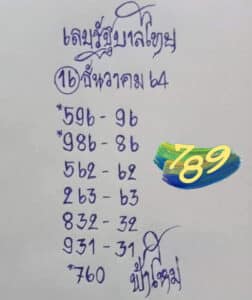 เลขรัฐบาลไทย
16 ธันวาคม 64
*596 - 96
*986 - 86
562 - 62
789
263 - 63
832 - 32
931 - 31
*760 ฟ้าใหม่